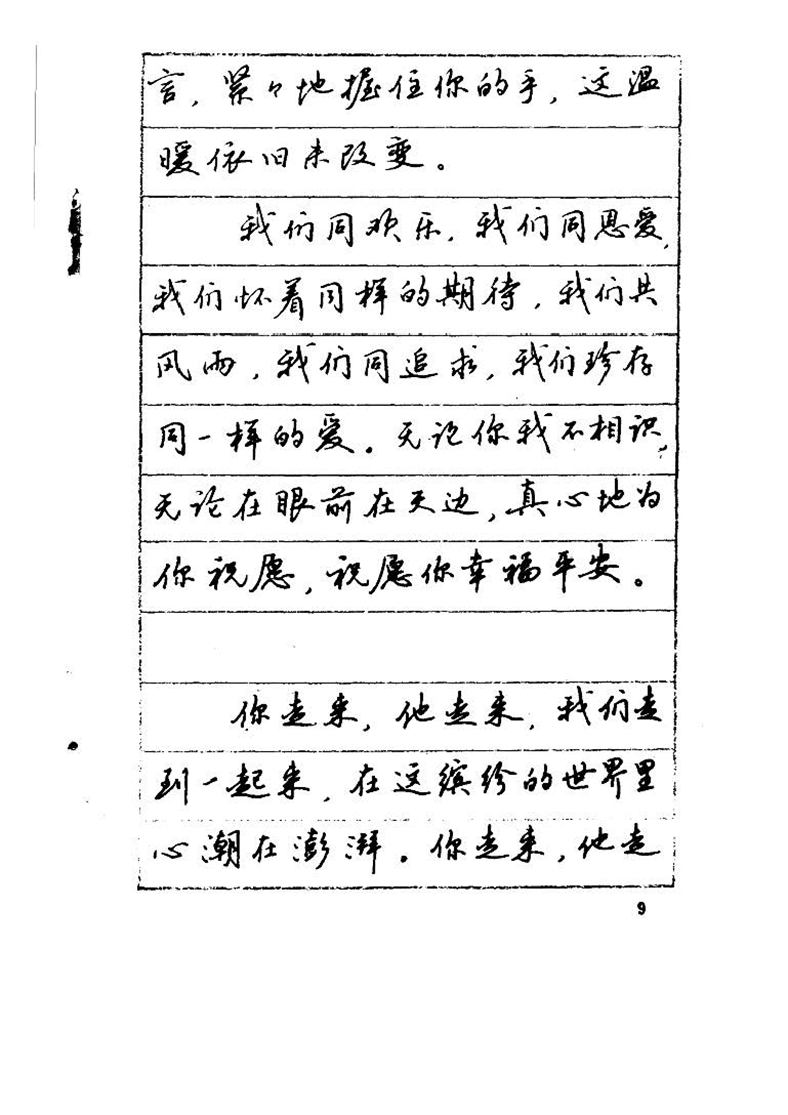 言，紧々地握住你的手，这温
暖依旧未改变。
我们同欢乐，我们同恩爱，
我们怀着同样的期待，我们共
风雨，我们同追求，我们珍存
同一样的爱。无论你我不相识，
无论在眼前在天边，真心地为
你祝愿，祝愿你幸福平安。
你走来，他走来，我们走
到一起来，在这缤纷的世界里
心潮在澎湃。你走来，他走
9